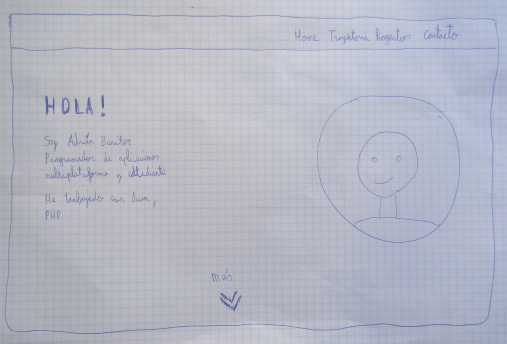 Home Trayectoria Proyectos Contacto
HOLA!
Soy Adrián Benítez
Programador de aplicaciones
multiplataforma y estudiante
He trabajado con Java,
PHP
más